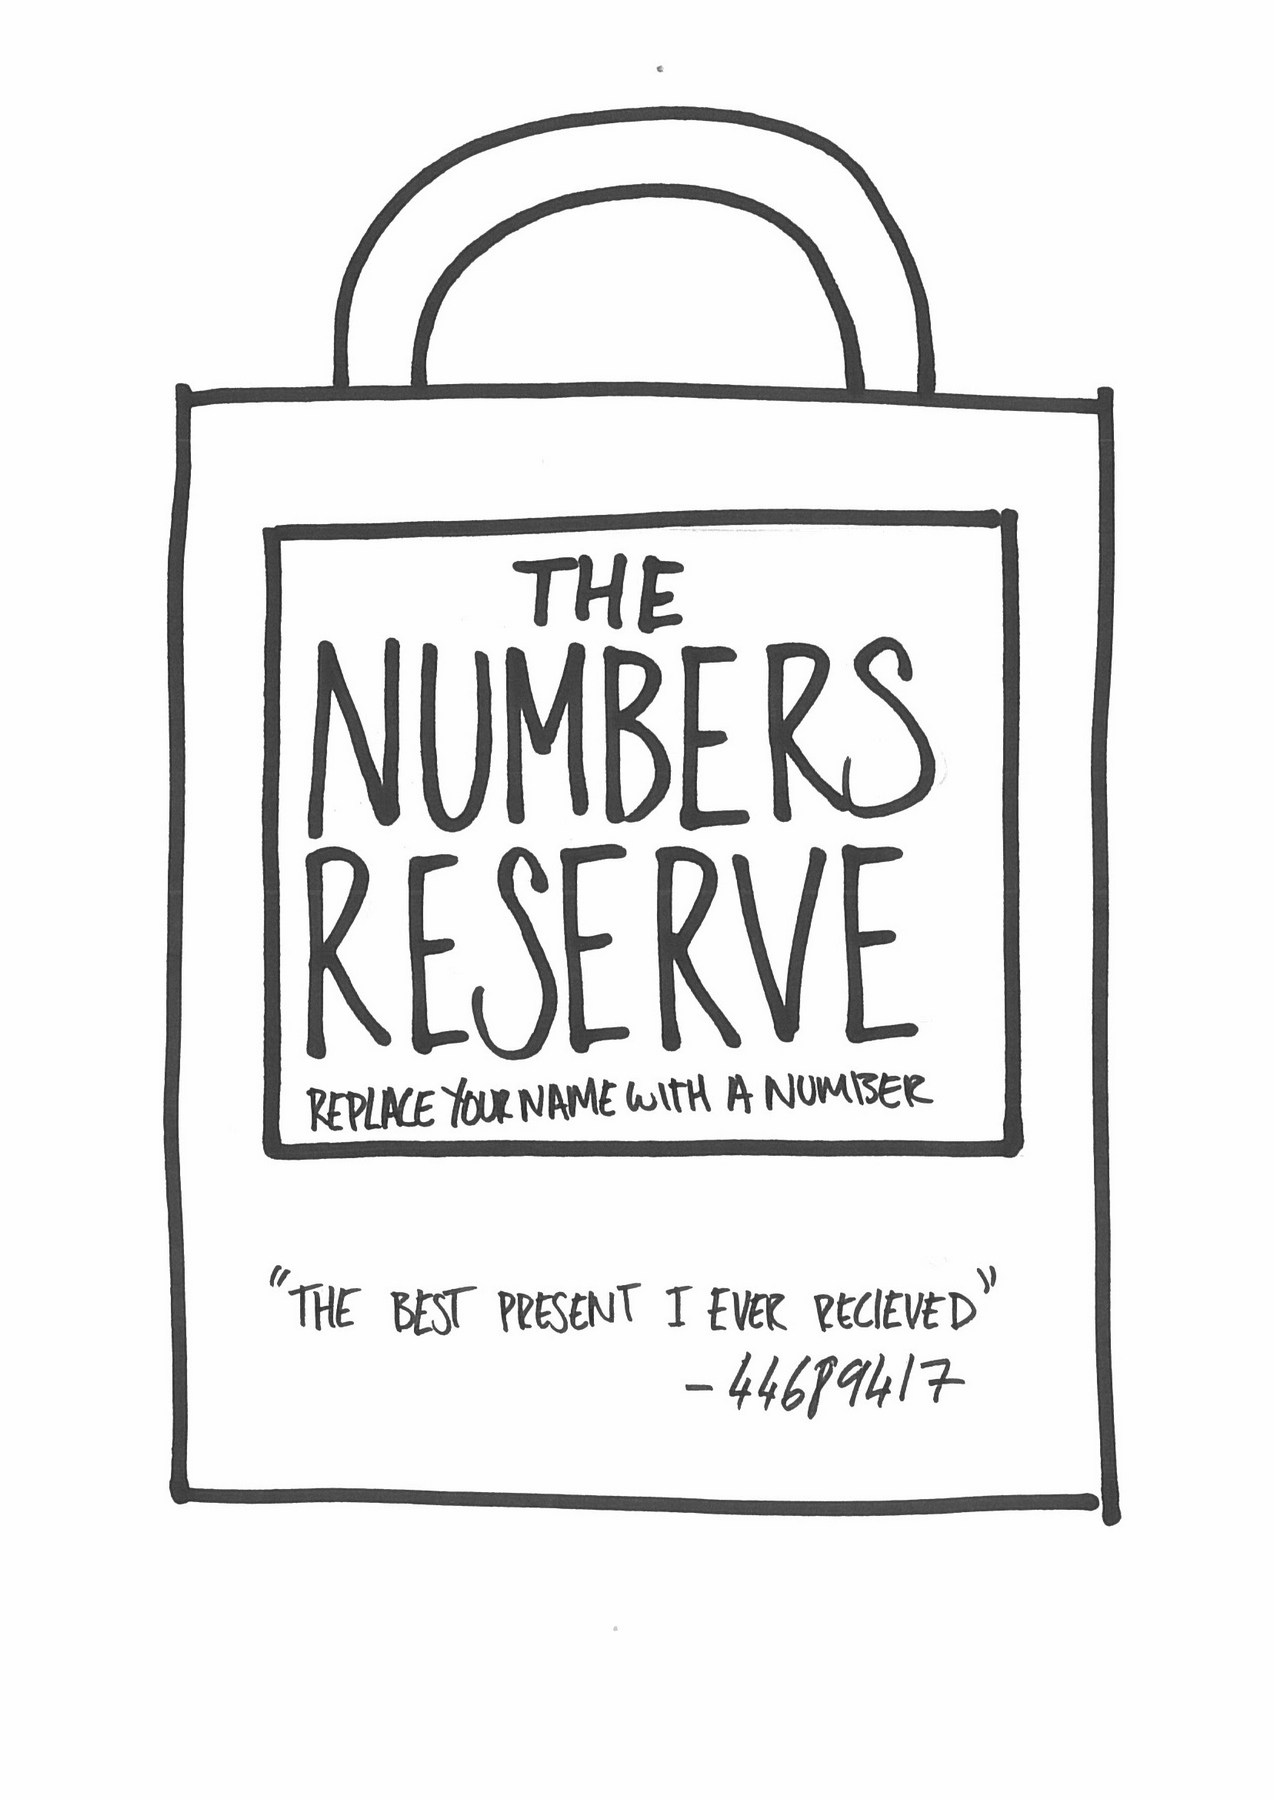 THE
NUMBERS
RESERVE
REPLACE YOUR NAME WITH A NUMBER
"THE BEST PRESENT I EVER RECIEVED"
- 44689417